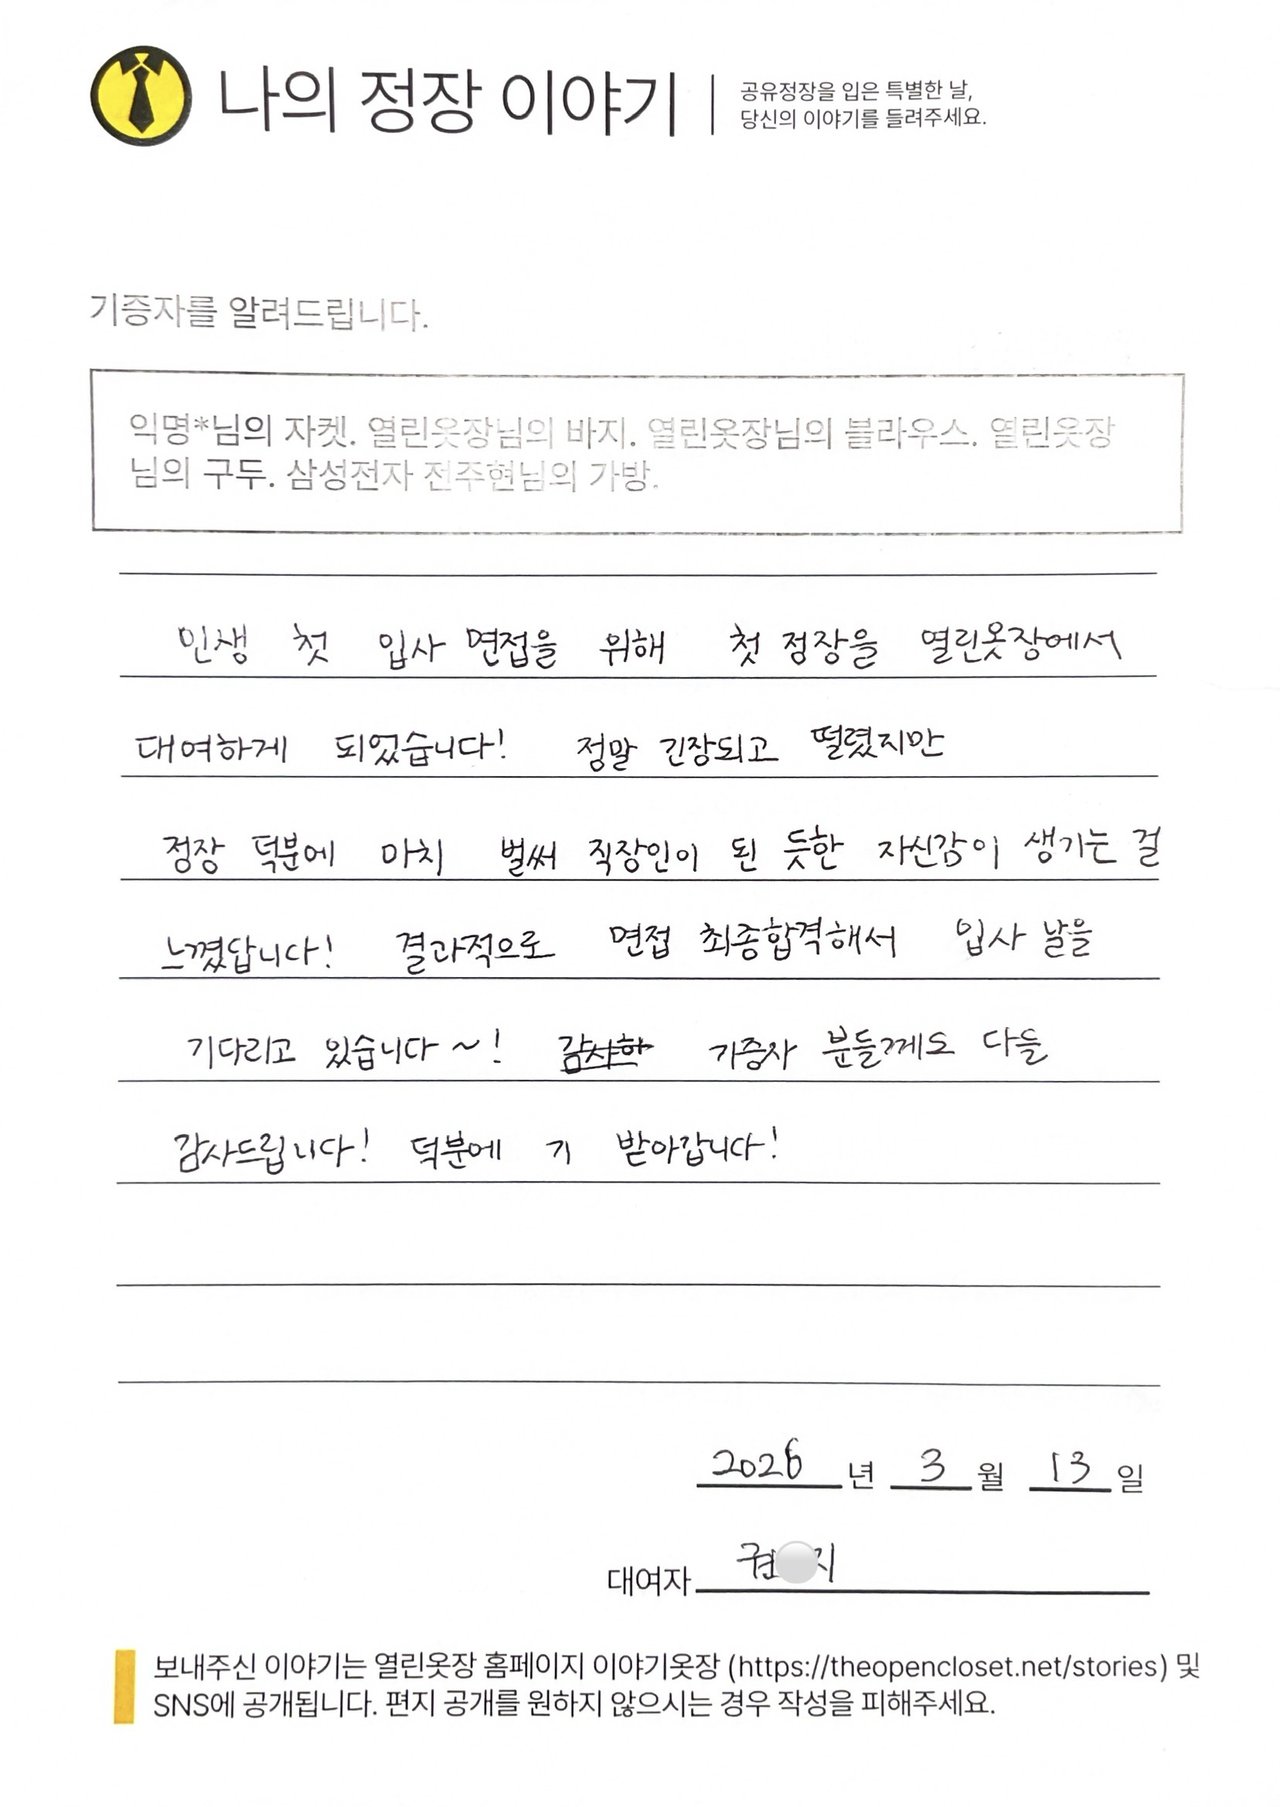 나의 정장 이야기
공유정장을 입은 특별한 날,
당신의 이야기를 들려주세요.
기증자를 알려드립니다.
익명*님의 자켓. 열린옷장님의 바지. 열린옷장님의 블라우스. 열린옷장
님의 구두. 삼성전자 전주현님의 가방.
인생 첫 입사 면접을 위해 첫 정장을 열린옷장에서
대여하게 되었습니다! 정말 긴장되고 떨렸지만
정장 덕분에 마치 벌써 직장인이 된 듯한 자신감이 생기는 걸
느꼈답니다! 결과적으로 면접 최종합격해서 입사 날을
기다리고 있습니다~! 감사하 기증자 분들께도 다들
감사드립니다! 덕분에 기 받아갑니다!
2026 년 3 월 13 일
대여자 권 지
보내주신 이야기는 열린옷장 홈페이지 이야기옷장 (https://theopencloset.net/stories) 및
SNS에 공개됩니다. 편지 공개를 원하지 않으시는 경우 작성을 피해주세요.